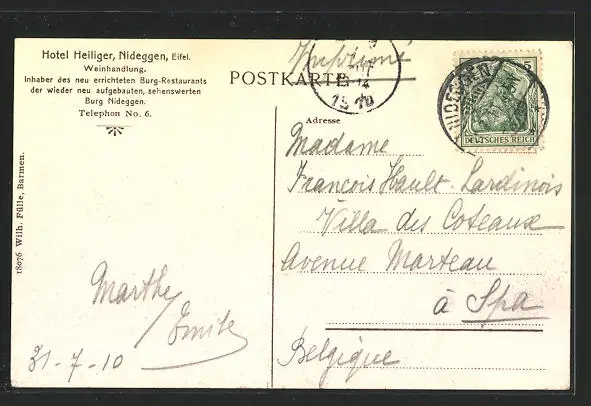 Hotel Heiliger, Nideggen, Eifel.
Weinhandlung.
Inhaber des neu errichteten Burg-Restaurants
der wieder neu aufgebauten, sehenswerten
Burg Nideggen.
Telephon No. 6.
Imprimé
POSTKARTE
1910
NIDEGGEN
5
DEUTSCHES REICH
Adresse
Madame
Francois Hault-Lardinois
Villa des Coteaux
Avenue Marteau
à Spa
Belgique
18076 Wilh. Fülle, Barmen.
Marthe
Emile
31-7-10